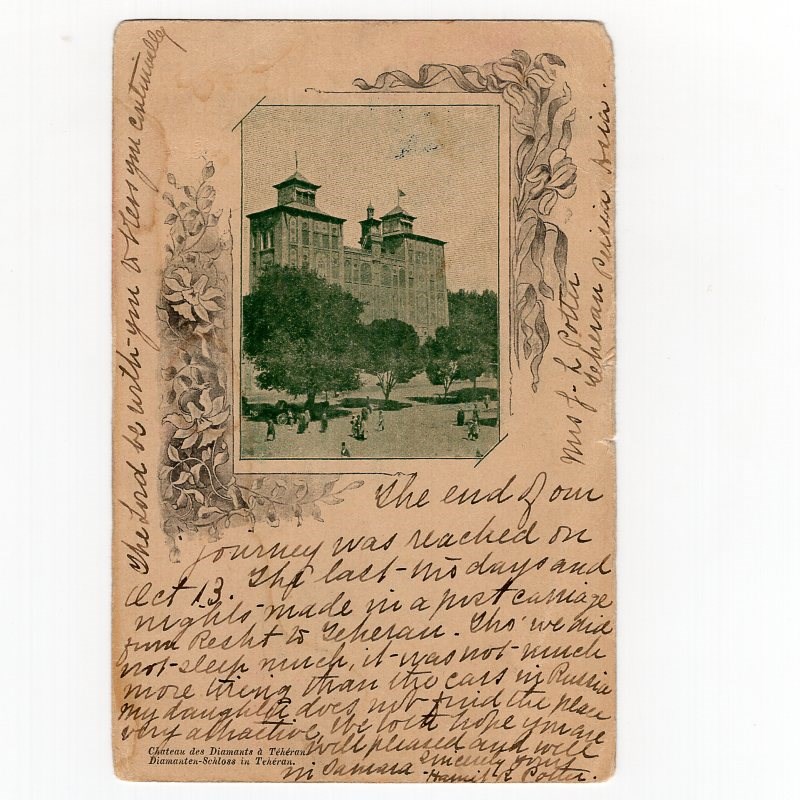 The end of our
journey was reached on
Oct 13. The last two days and
nights made in a post carriage
from Resht to Teheran. Tho' we did
not sleep much, it was not much
more tiring than the cars in Russia
My daughter does not find the place
very attractive. We both hope you are
well pleased and will
in Samara Sincerely yours
Harriet R Potter.
The Lord be with you & bless you continually
Mrs J. L Potter
Teheran Persia Asia.
Chateau des Diamants à Téhéran.
Diamanten-Schloss in Teheran.